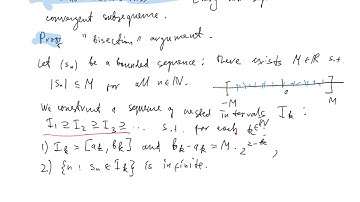 convergent subsequence.
Proof "bisection" argument.
Let (sn) be a bounded sequence: there exists M∈ℝ s.t.
|sn| ≤ M for all n∈ℕ.
-M M
We construct a sequence of nested intervals Ik:
I1 ⊇ I2 ⊇ I3 ⊇ ... s.t. for each k∈ℕ
1) Ik = [ak, bk] and bk - ak = M · 2^{2-k},
2) {n : sn ∈ Ik} is infinite.